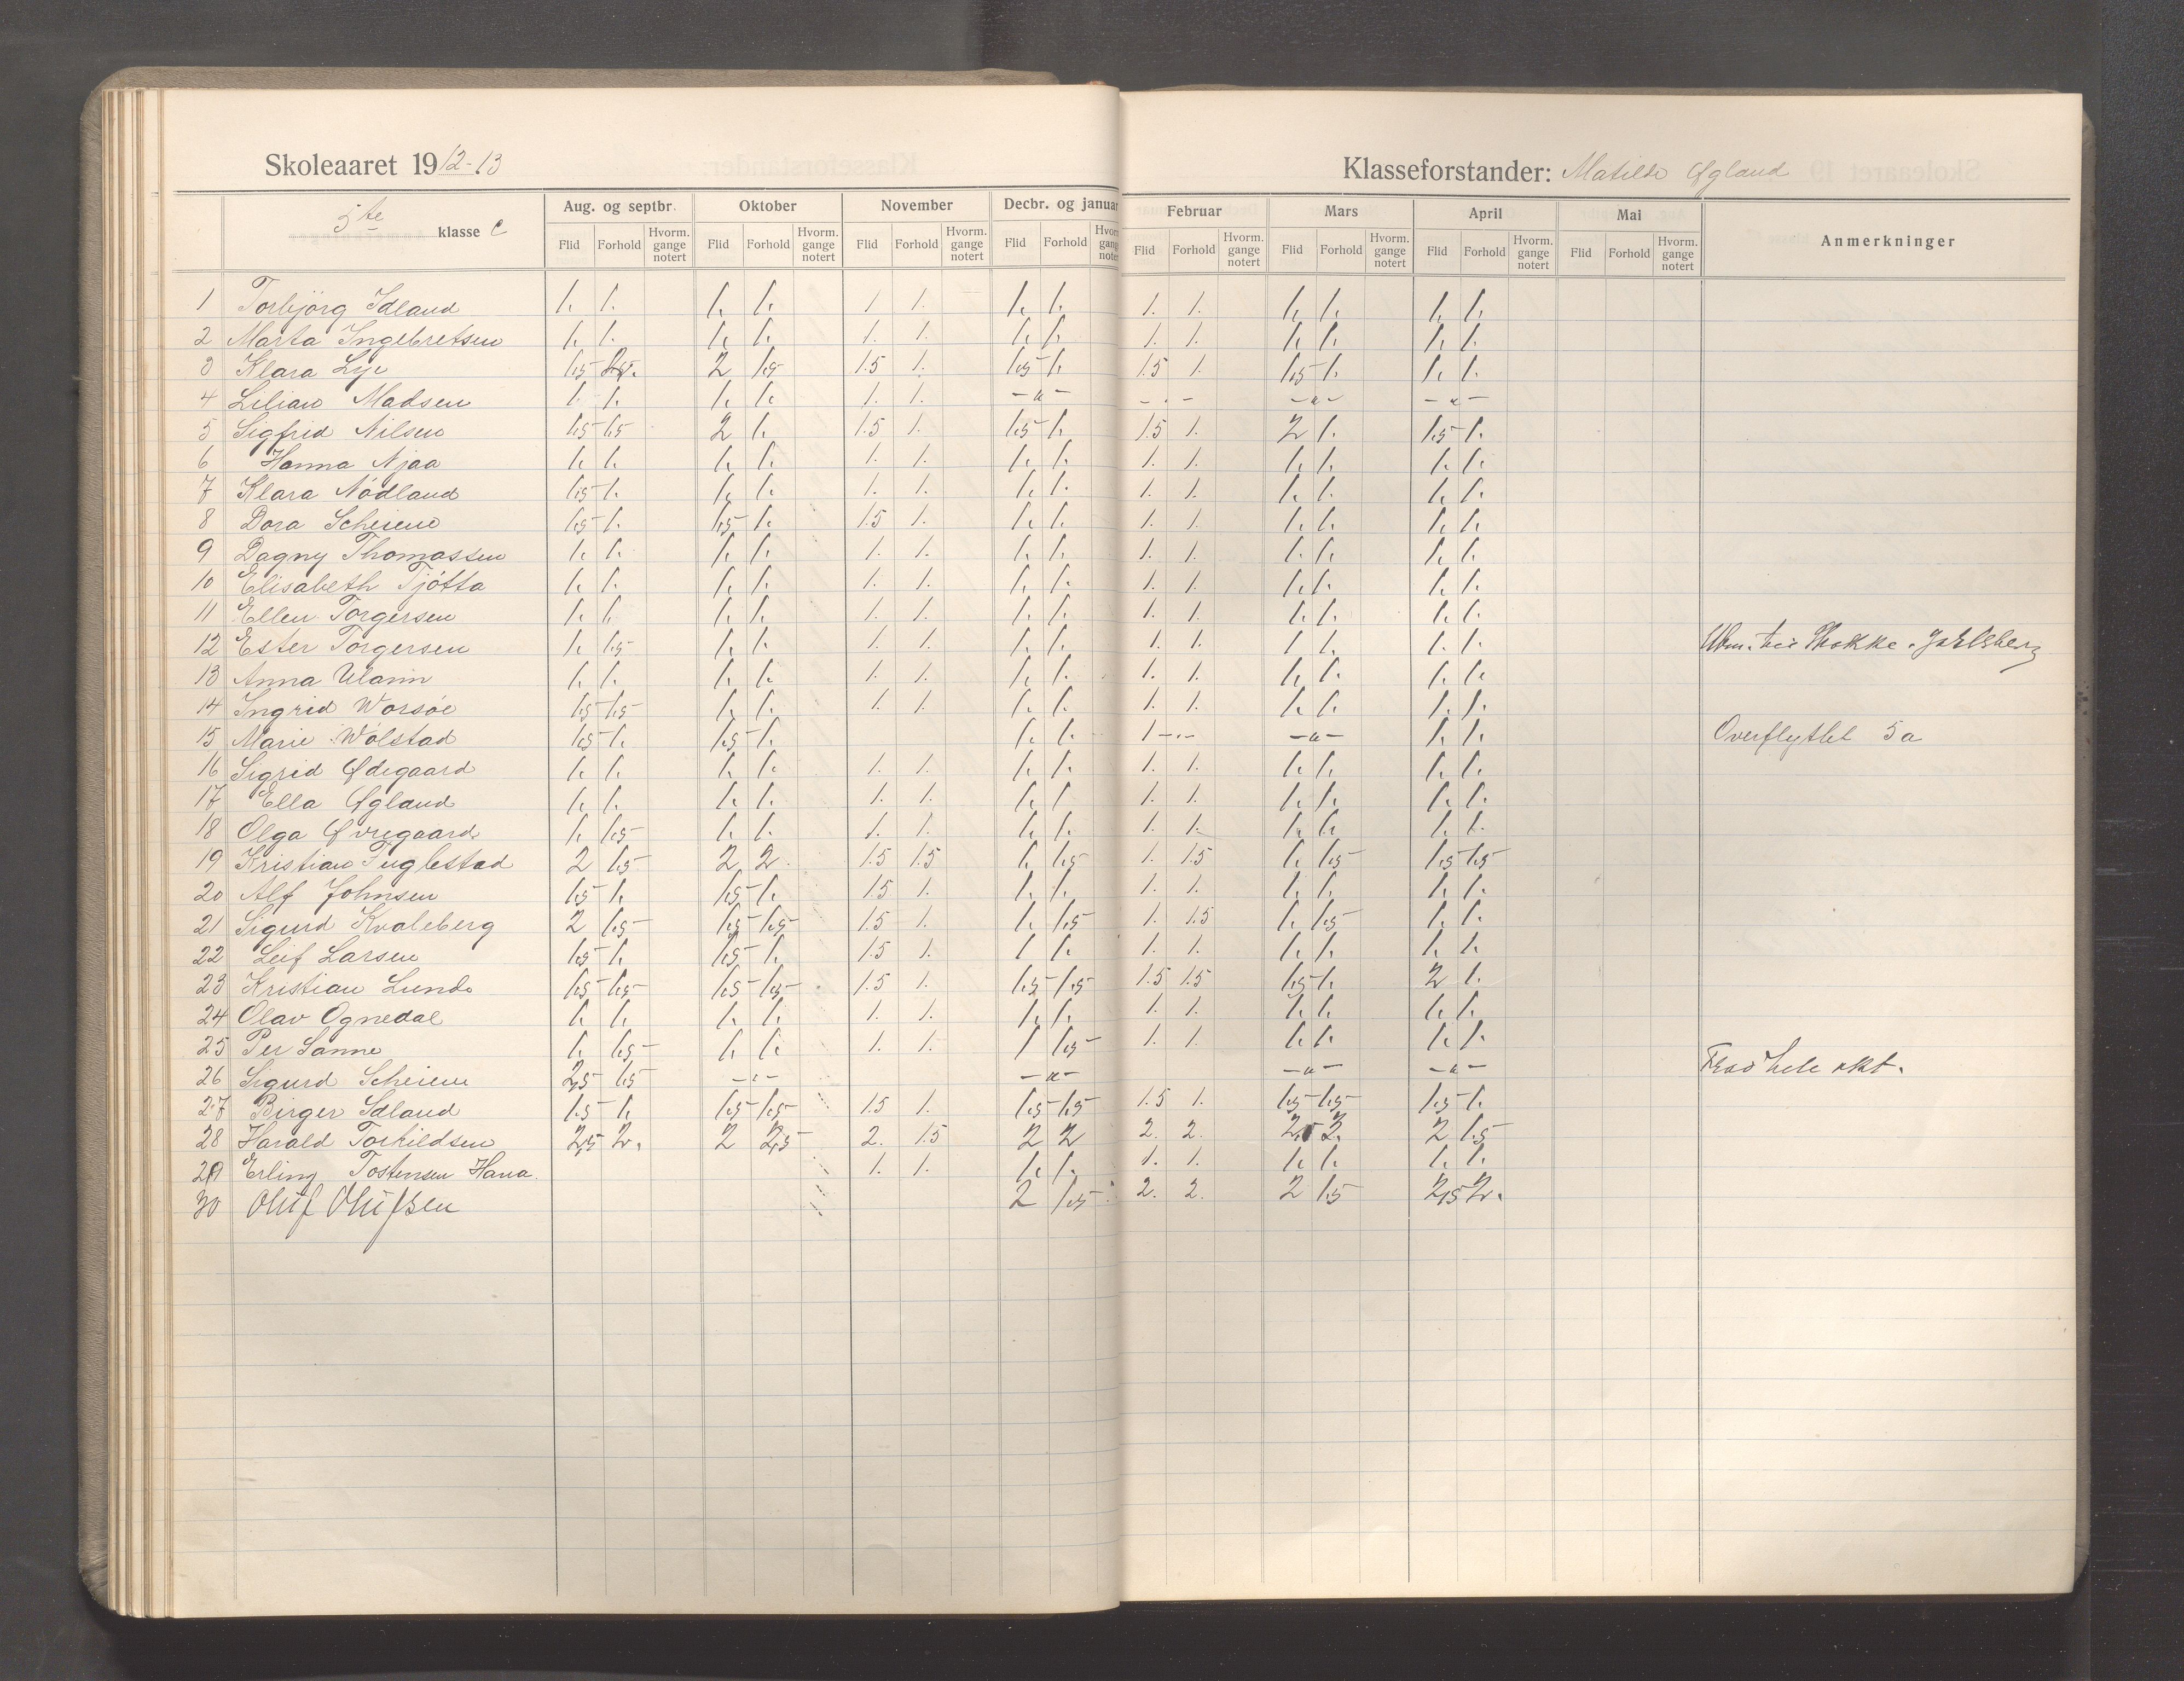 Skoleaaret 1912-13
Klasseforstander: Matilde Øgland
5te klasse c
Aug. og septbr. Oktober November Decbr. og januar Februar Mars April Mai Anmerkninger
Flid Forhold Hvorm. gange notert Flid Forhold Hvorm. gange notert Flid Forhold Hvorm. gange notert Flid Forhold Hvorm. gange notert Flid Forhold Hvorm. gange notert Flid Forhold Hvorm. gange notert Flid Forhold Hvorm. gange notert Flid Forhold Hvorm. gange notert
1 Torbjörg Idland 1. 1. 1. 1. 1 1. 1. 1. 1. 1. 1. 1. 1. 1.
2 Marta Ingebretsen 1. 1. 1. 1. 1. 1. 1. 1. 1. 1. 1. 1. 1. 1.
3 Klara Lye 1.5 1.5. 2 1.5 1.5 1. 1.5 1. 1.5 1. 1.5 1. 1. 1.
4 Lilian Madsen 1. 1. 1. 1. 1. 1. -"- -"- -"- -"-
5 Sigfrid Nilsen 1.5 1.5 2 1. 1.5 1. 1.5 1. 1.5 1. 2 1. 1.5 1.
6 Hanna Njaa 1. 1. 1. 1. 1. 1. 1. 1. 1. 1. 1. 1. 1. 1.
7 Klara Nödland 1.5 1. 1. 1. 1. 1. 1. 1. 1. 1. 1. 1. 1. 1.
8 Dora Scheiene 1.5 1. 1.5 1. 1.5 1. 1. 1. 1. 1. 1. 1. 1. 1.
9 Dagny Thomassen 1. 1. 1. 1. 1. 1. 1. 1. 1. 1. 1. 1. 1. 1.
10 Elisabeth Tjötta 1. 1. 1. 1. 1. 1. 1. 1. 1. 1. 1. 1. 1. 1.
11 Ellen Torgersen 1. 1. 1. 1. 1. 1. 1. 1. 1. 1. 1. 1. 1. 1.
12 Ester Torgersen 1. 1.5 1. 1. 1. 1. 1. 1. 1. 1. 1 1. 1. 1.
13 Anna Ularin 1. 1. 1. 1. 1. 1. 1. 1. 1. 1. 1. 1. 1. 1.
14 Ingrid Worsöe 1.5 1.5 1. 1. 1. 1. 1. 1. 1. 1. 1. 1. 1. 1.
15 Marie Wölstad 1.5 1. 1.5 1. 1. 1. 1 -"- -"- 1. 1. Overflyttet 5a
16 Sigrid Ødegaard 1. 1. 1. 1. 1. 1. 1. 1. 1. 1. 1. 1. 1. 1.
17 Ella Øgland 1. 1. 1. 1. 1. 1. 1. 1 1. 1. 1. 1. 1. 1.
18 Olga Øvregaard 1. 1.5 1. 1. 1. 1. 1. 1. 1. 1. 1. 1. 1. 1.
19 Kristian Fuglestad 2 1.5 2 2. 1.5 1.5 1. 1.5 1. 1.5 1. 1.5 1.5 1.5
20 Alf Johnsen 1.5 1. 1.5 1. 1.5 1. 1. 1. 1. 1. 1. 1. 1. 1.
21 Sigurd Kvaleberg 2 1.5 1.5 1.5 1.5 1. 1. 1.5 1. 1.5 1. 1.5 1. 1.
22 Leif Larsen 1.5 1. 1.5 1. 1.5 1. 1 1. 1. 1. 1. 1. 1. 1.
23 Kristian Lunde 1.5 1.5 1.5 1.5 1.5 1. 1.5 1.5 1.5 1.5 1.5 1. 2 1.
24 Olav Ognedal 1. 1. 1. 1. 1. 1. 1. 1. 1. 1. 1. 1. 1. 1.
25 Per Sanne 1. 1.5 1. 1. 1. 1. 1 1.5 1. 1. 1. 1. 1. 1.
26 Sigurd Scheiene 2,5 1.5 -"- -"- -"- -"- Frav hele okt.
27 Birger Idland 1.5 1. 1.5 1.5 1.5 1. 1.5 1.5 1.5 1. 1.5 1.5 1.5 1.
28 Harald Torkildsen 2,5 2. 2 2,5 2. 1.5 2 2 2. 2. 2,5 2. 2 1.5
29 Erling Tostensen Hana. 1. 1. 1. 1. 1. 1. 1. 1. 1. 1.
30 Oluf Olufsen 2 1.5 2. 2. 2 1.5 2,5 2.